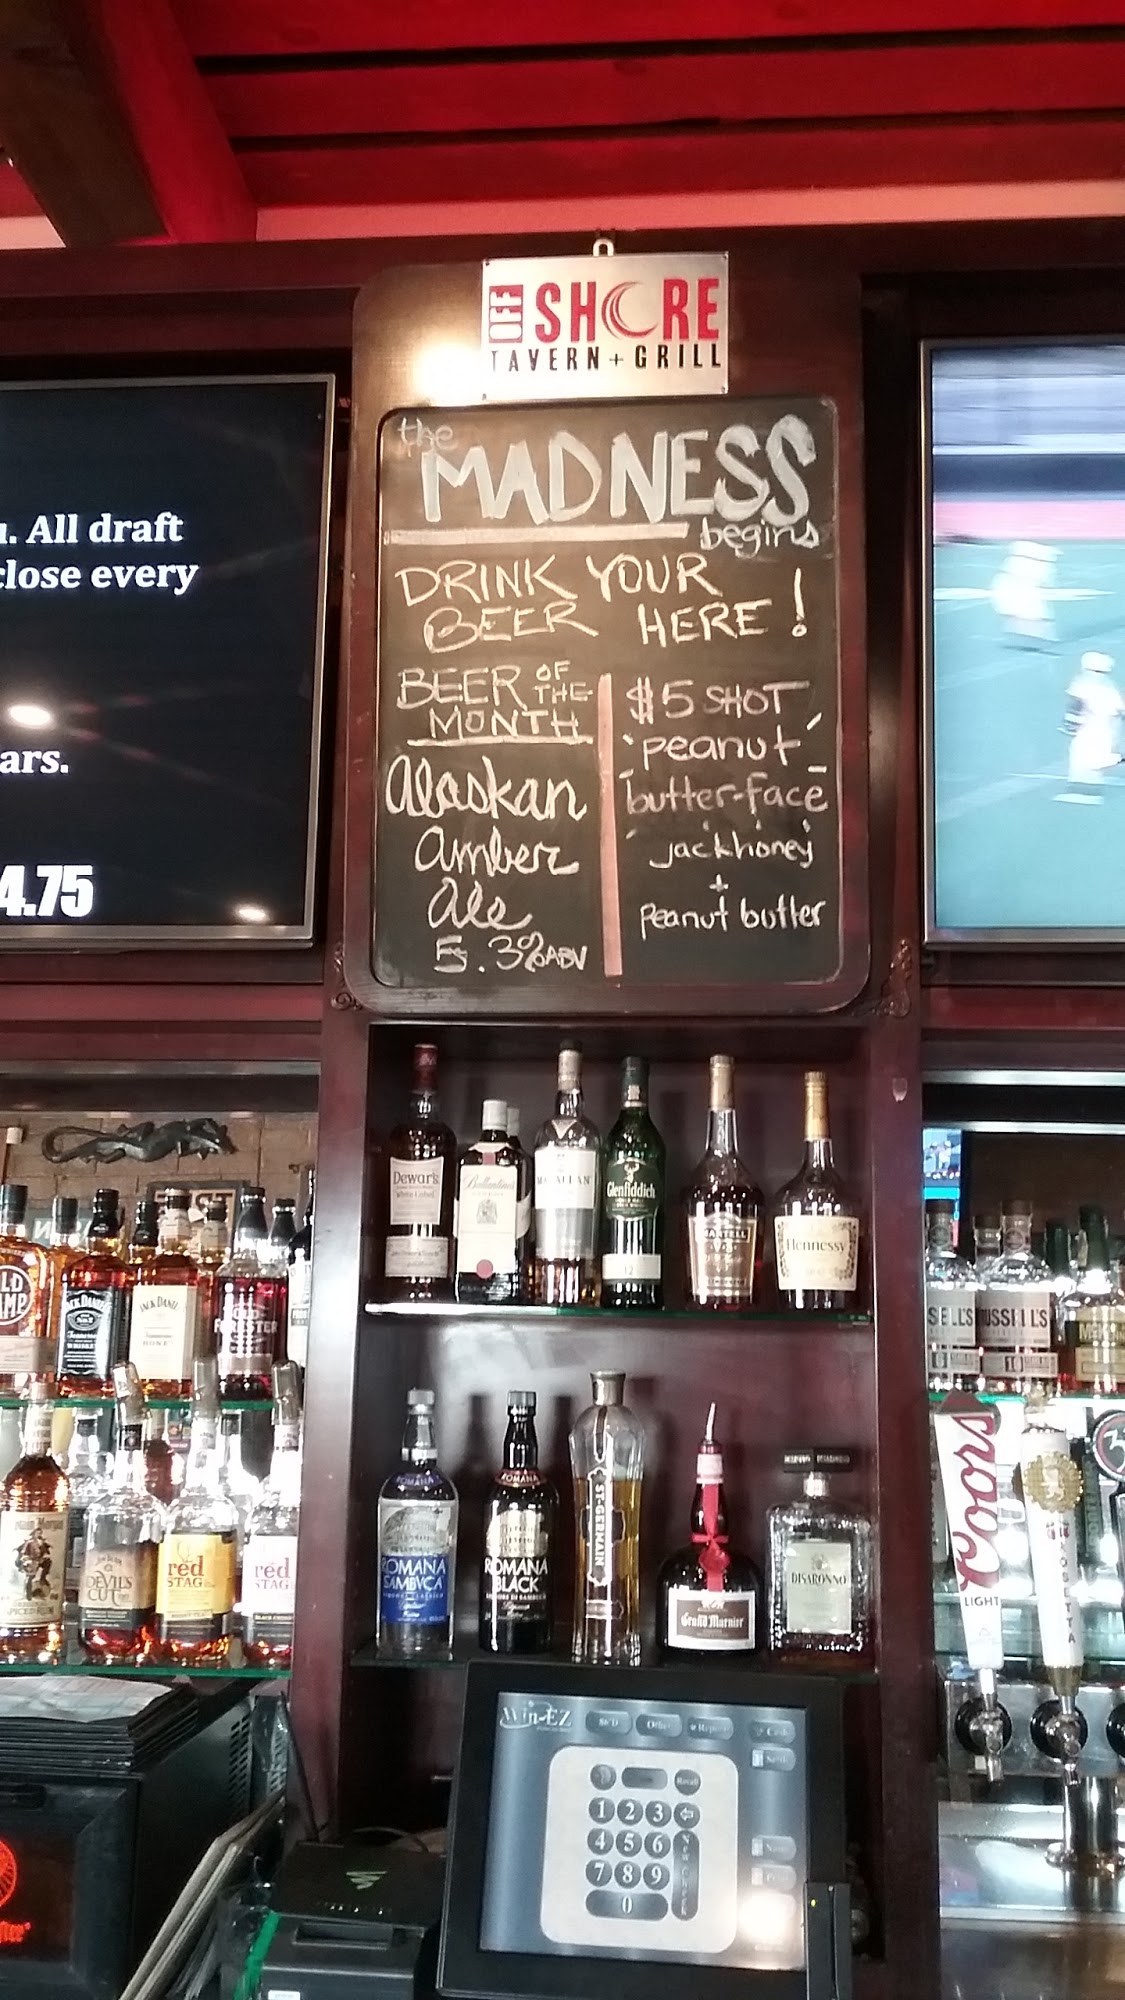 OFF SHORE
TAVERN + GRILL
the
MADNESS
begins
DRINK YOUR
BEER HERE!
BEER OF THE
MONTH
Alaskan
Amber
Ale
5.3% ABV
$5 SHOT
'peanut
butter-face'
jack honey
+
peanut butter
. All draft
close every
ars.
4.75
Dewar's
White Label
Ballantine's
MACALLAN
Glenfiddich
12
MARTELL
VS
Hennessy
JACK DANIEL'S
Tennessee
WHISKEY
JACK DANIEL'S
Tennessee
HONEY
SELL'S
RUSSELL'S
10
ROMANA
ROMANA
SAMBVCA
ROMANA
ROMANA
BLACK
ST-GERMAIN
Grand Marnier
DISARONNO
SPICED RUM
DEVIL'S
CUT
red
STAG
red
STAG
Coors
LIGHT
Win-EZ
Recall
1 2 3
4 5 6
7 8 9
0